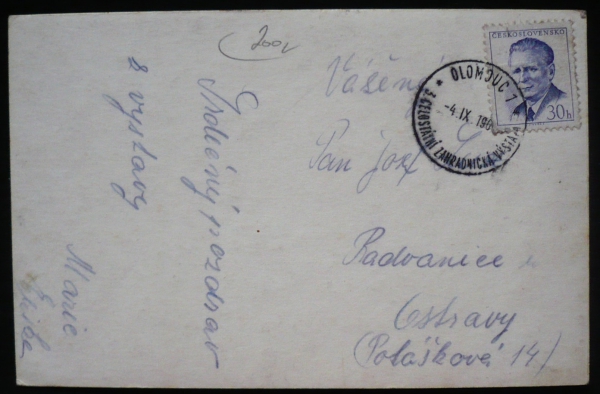 200,-
Srdečný pozdrav
z výstavy
Marie
ČESKOSLOVENSKO
30h
OLOMOUC 1
-4.IX.196
3.CELOSTÁTNÍ ZAHRADNICKÁ VÝSTAVA
Vážený
Pan
Radvanice u
Ostravy
(Polášková 14)